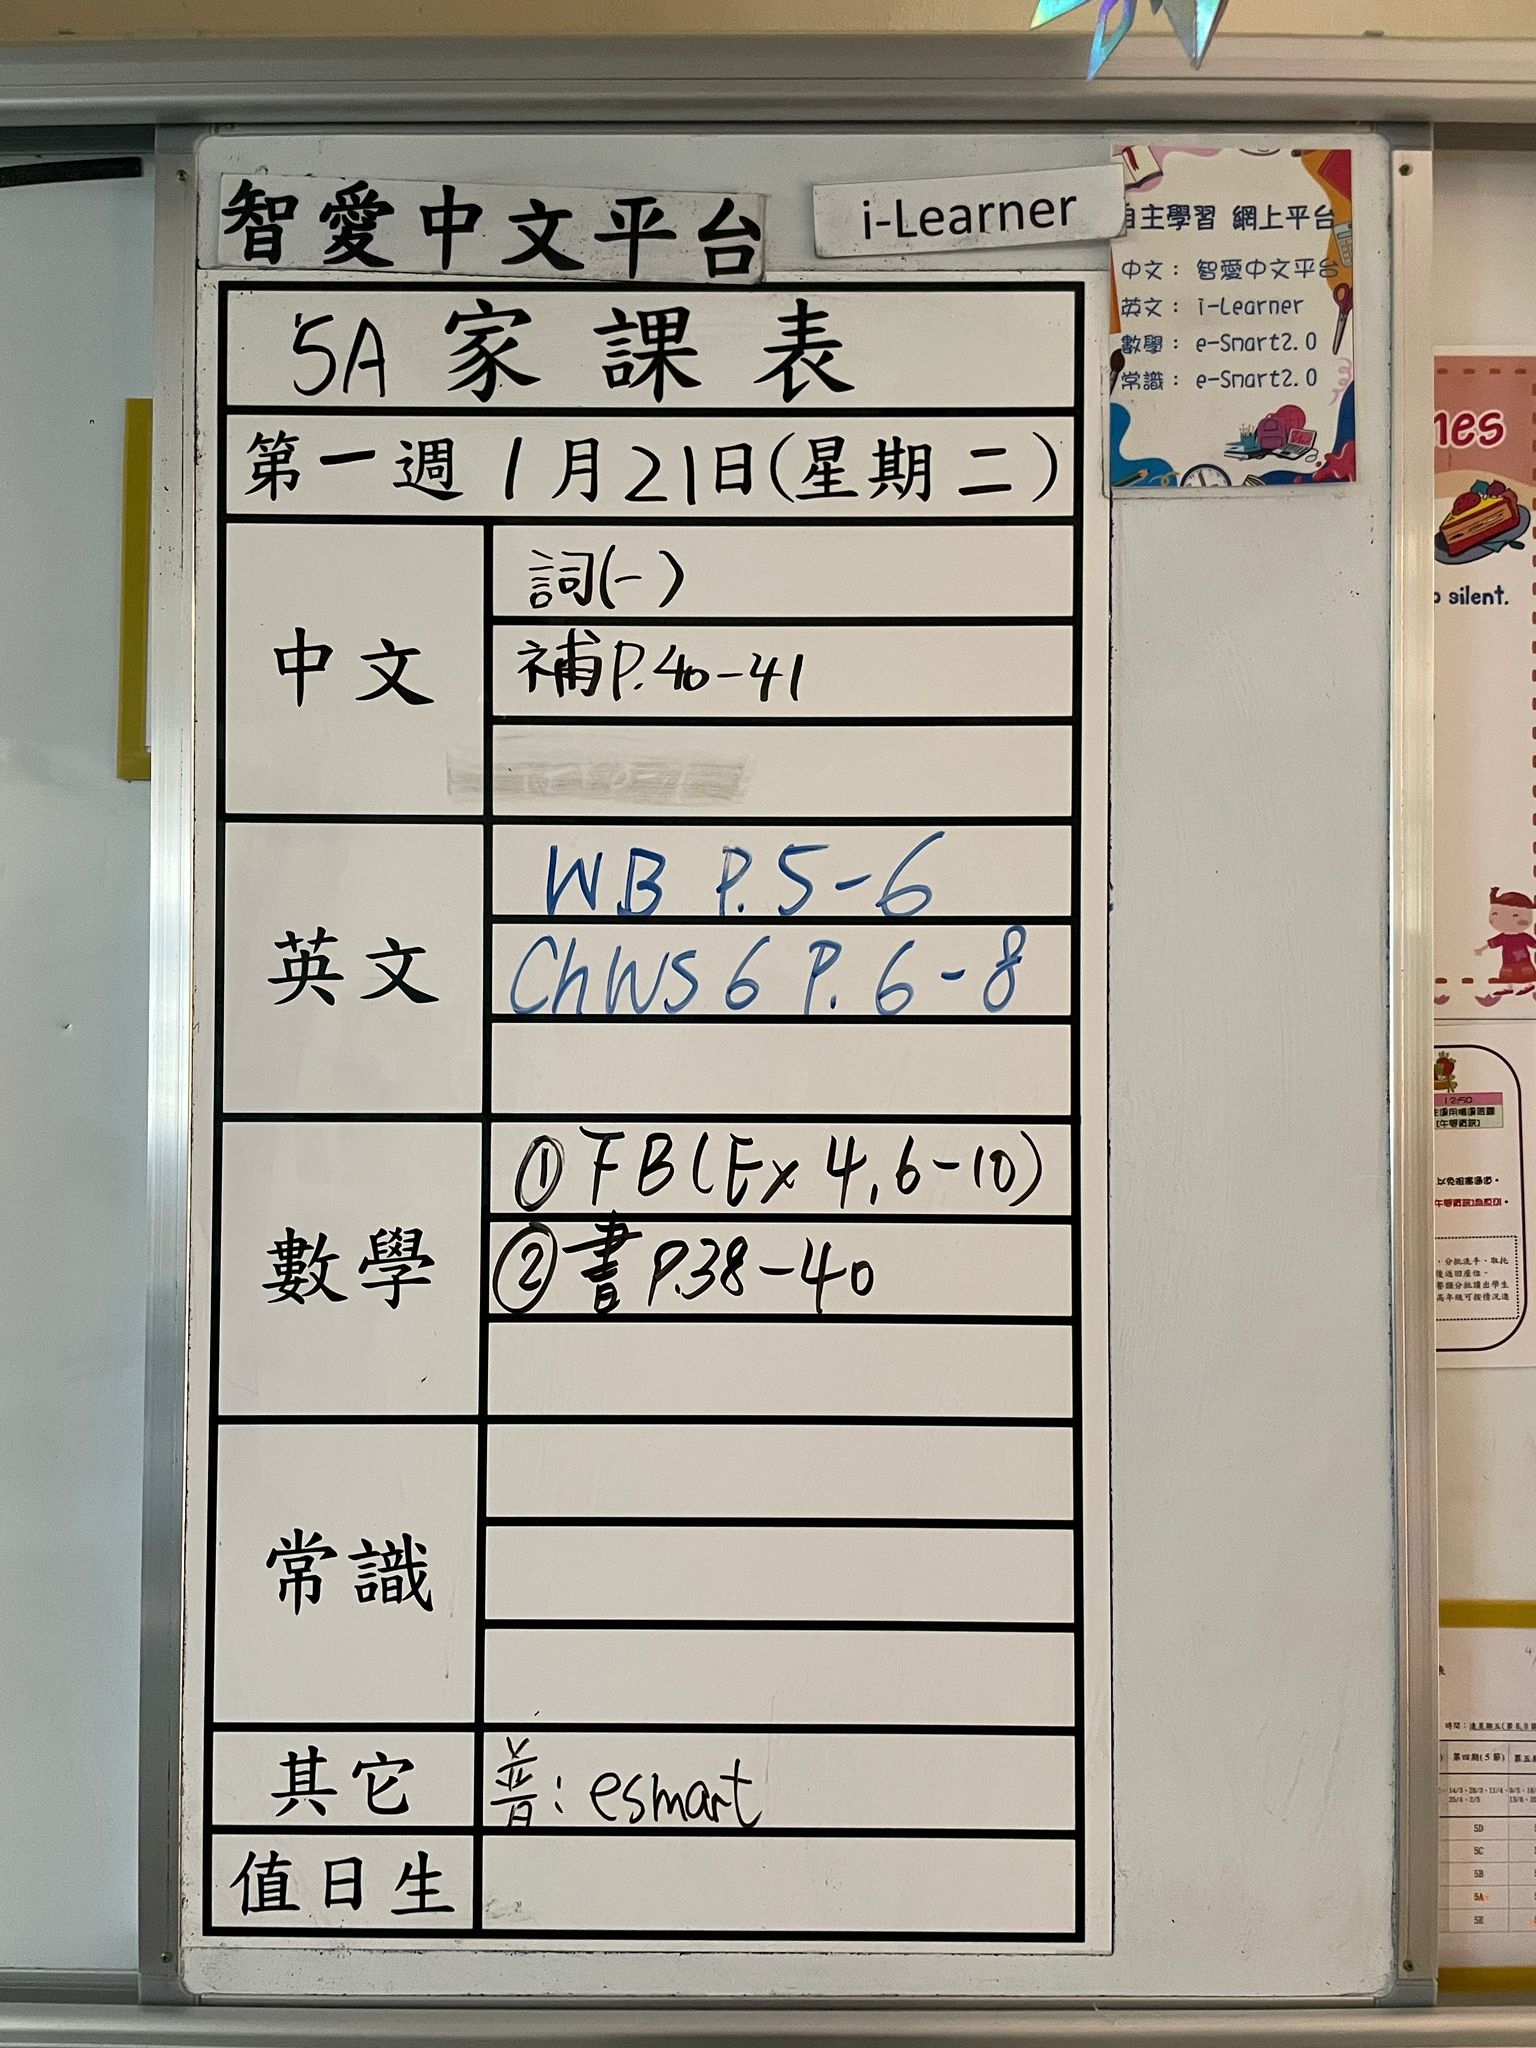 智愛中文平台
i-Learner
自主學習 網上平台
中文： 智愛中文平台
英文： i-Learner
數學： e-Smart2.0
常識： e-Smart2.0
5A 家課表
第一週 1月21日(星期二)
中文
詞(一)
補P.40-41
英文
WB P.5-6
ChWS 6 P. 6-8
數學
①TB(Ex 4, 6-10)
②書P.38-40
常識
其它
普：esmart
值日生
mes
silent.
12:50
第四期(5節)
5D
5C
5B
5A
5E